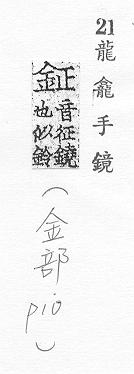 21 龍龕手鏡
鉦 音征鐃
也似鈴
(金部 p10)